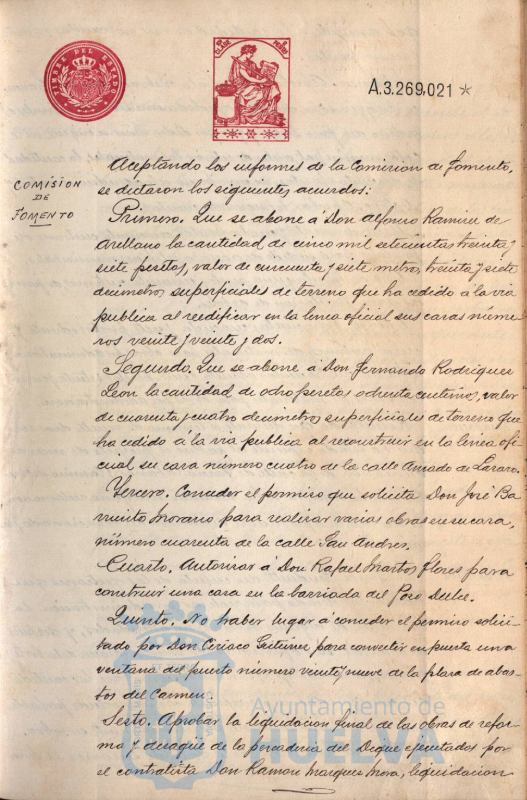 TIMBRE DEL ESTADO
A.3.269,021 *
COMISION
DE
FOMENTO
Aceptando los informes de la Comision de Fomento,
se dictaron los siguientes acuerdos:
Primero. Que se abone á Don Alfonso Ramirez de
Arellano la cantidad de cinco mil setecientas treinta y
siete pesetas, valor de cincuenta y siete metros, treinta y siete
decimetros superficiales de terreno que ha cedido á la via
publica al reedificar en la linea oficial sus casas núme
ros veinte y veinte y dos.
Segundo. Que se abone á Don Fernando Rodriguez
Leon la cantidad de ocho pesetas ochenta centimos, valor
de cuarenta y cuatro decimetros superficiales de terreno que
ha cedido á la via publica al reconstruir en la linea ofi
cial su casa número cuatro de la calle Amado de Lázaro.
Tercero. Conceder el permiso que solicita Don José Ba
Morano para realizar varias obras en su casa,
número cuarenta de la calle San Andres.
Cuarto. Autorizar á Don Rafael Martos Flores para
construir una casa en la barriada del Pozo Dulce.
Quinto. No haber lugar á conceder el permiso solici
tado por Don Ciriaco Gutierrez para convertir en puerta una
ventana del puesto número veinte y nueve de la plaza de abas
tos del Carmen.
Sexto. Aprobar la liquidacion final de las obras de refor
ma y desagüe de la pescaderia del Dique ejecutados por
el contratista Don Ramon Marquez Mora, liquidacion
Ayuntamiento de
HUELVA